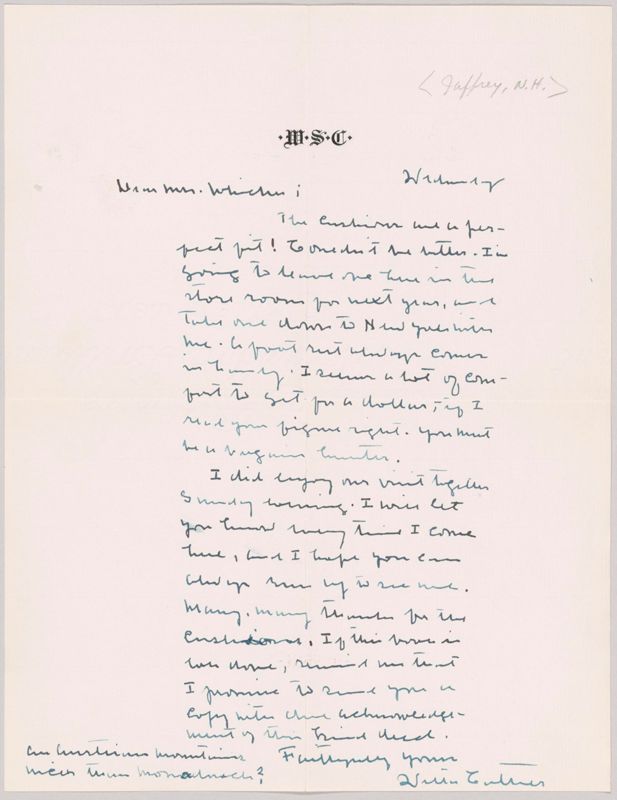 <Jaffrey, N.H.>
·W·S·C·
Wednesday
Dear Mrs. Whicher;
The cushions are a per-
fect fit! Couldn't be better. I'm
going to leave one here in the
store room for next year, and
take one down to New York with
me. A foot rest always comes
in handy. It seems a lot of com-
fort to get for a dollar, if I
read your figure right. You must
be a bargain hunter.
I did enjoy our visit together
Sunday evening. I will let
you know every time I come
here, and I hope you can
always run up to see me.
Many, many thanks for the
cushions. If this book is
ever done, remind me that
I promise to send you a
copy with due acknowledge-
ment of this kind deed.
Faithfully yours
Willa Cather
Are Austrian mountains
nicer than Monadnock?